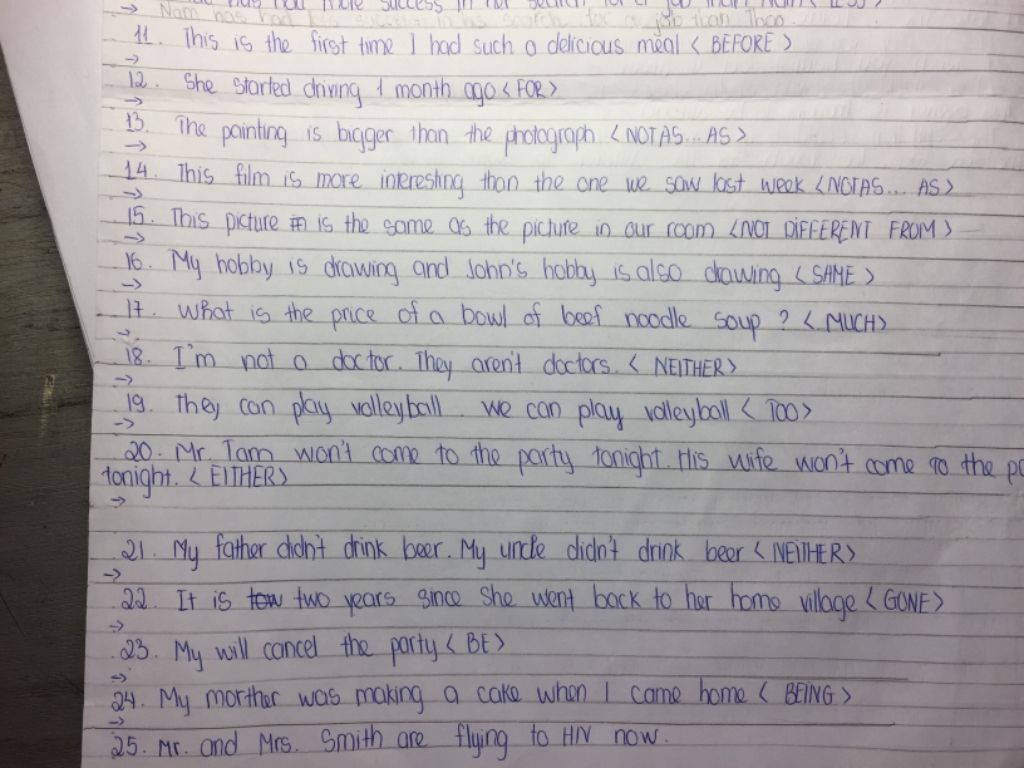 more success in her search for a job than Nam < LESS >
→ Nam has had less success in his search for a job than Thao.
11. This is the first time I had such a delicious meal < BEFORE >
→
12. She started driving 1 month ago < FOR >
→
13. The painting is bigger than the photograph < NOT AS... AS >
→
14. This film is more interesting than the one we saw last week < NOT AS... AS >
→
15. This picture in is the same as the picture in our room < NOT DIFFERENT FROM >
→
16. My hobby is drawing and John's hobby is also drawing < SAME >
→
17. What is the price of a bowl of beef noodle soup ? < MUCH >
→
18. I'm not a doctor. They aren't doctors. < NEITHER >
→
19. They can play volleyball. We can play volleyball < TOO >
→
20. Mr. Tam won't come to the party tonight. His wife won't come to the pa
tonight. < EITHER >
→
21. My father didn't drink beer. My uncle didn't drink beer < NEITHER >
→
22. It is tow two years since she went back to her home village < GONE >
→
23. My will cancel the party < BE >
→
24. My morther was making a cake when I came home < BEING >
→
25. Mr. and Mrs. Smith are flying to HN now.